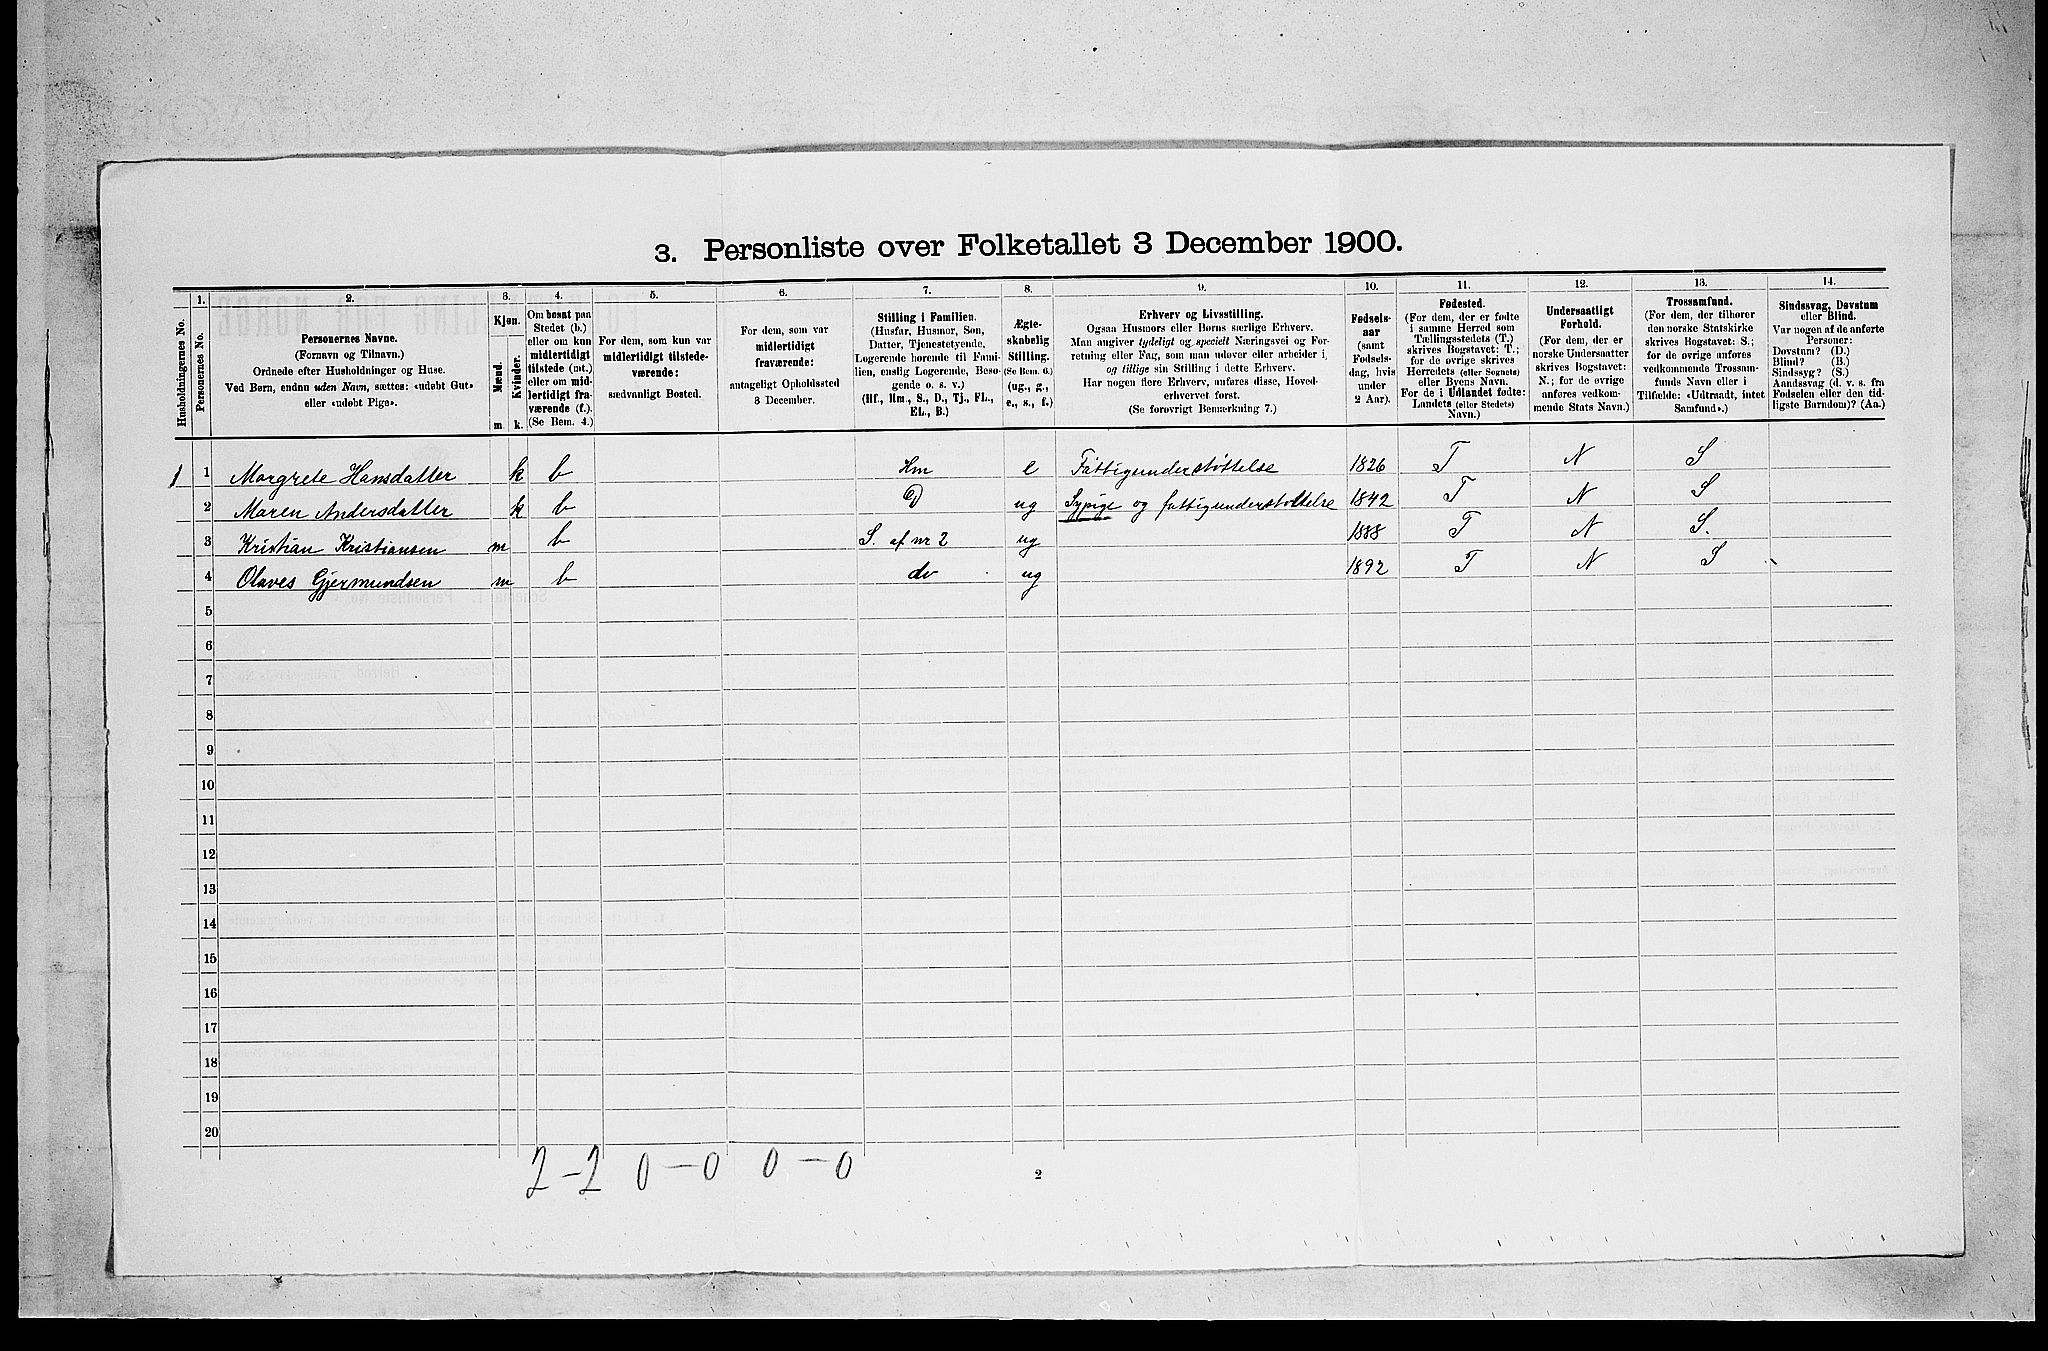 3. Personliste over Folketallet 3 December 1900.
Husholdningernes No.
1.
Personernes No.
2.
Personernes Navne.
(Fornavn og Tilnavn.)
Ordnede efter Husholdninger og Huse.
Ved Børn, endnu uden Navn, sættes: «udøbt Gut»
eller «udøbt Pige».
3.
Kjøn.
Mænd.
Kvinder.
m. k.
4.
Om bosat paa
Stedet (b.)
eller om kun
midlertidigt
tilstede (mt.)
eller om mid-
lertidigt fra-
værende (f.).
(Se Bem. 4.)
5.
For dem, som kun var
midlertidigt tilstede-
værende:
sædvanligt Bosted.
6.
For dem, som var
midlertidigt
fraværende:
antageligt Opholdssted
3 December.
7.
Stilling i Familien.
(Husfar, Husmor, Søn,
Datter, Tjenestetyende,
Logerende hørende til Fami-
lien, enslig Logerende, Besø-
gende o. s. v.)
(Hf., Hm., S., D., Tj., FL.,
EL., B.)
8.
Ægte-
skabelig
Stilling.
(Se Bem. 6.)
(ug., g.,
e., s., f.)
9.
Erhverv og Livsstilling.
Ogsaa Husmors eller Børns særlige Erhverv.
Man angiver tydeligt og specielt Næringsvei og For-
retning eller Fag, som man udøver eller arbeider i,
og tillige sin Stilling i dette Erhverv.
Har nogen flere Erhverv, anføres disse, Hoved-
erhvervet først.
(Se forøvrigt Bemerkning 7.)
10.
Fødsels-
aar
(samt
Fødsels-
dag, hvis
under
2 Aar).
11.
Fødested.
(For dem, der er fødte
i samme Herred som
Tællingsstedets (T.)
skrives Bogstavet: T.;
for de øvrige skrives
Herredets (eller Sognets)
eller Byens Navn.
For de i Udlandet fødte:
Landets (eller Stedets)
Navn.)
12.
Undersaatligt
Forhold.
(For dem, der er
norske Undersaatter
skrives Bogstavet:
N.; for de øvrige
anføres vedkom-
mende Stats Navn.)
13.
Trossamfund.
(For dem, der tilhører
den norske Statskirke
skrives Bogstavet: S.;
for de øvrige anføres
vedkommende Trossam-
funds Navn eller i
Tilfælde: «Udtraadt, intet
Samfund».)
14.
Sindssvag, Døvstum
eller Blind.
Var nogen af de anførte
Personer:
Døvstum? (D.)
Blind? (B.)
Sindssyg? (S.)
Aandssvag (d. v. s. fra
Fødselen eller den tid-
ligste Barndom)? (Aa.)
1 1 Margrete Hansdatter k b Hm e Fattigunderstøttelse 1826 T N S
2 Maren Andersdatter k b D ug Sypige og fattigunderstøttelse 1842 T N S
3 Kristian Kristiansen m b S. af nr 2 ug 1888 T N S.
4 Olaves Gjermundsen m b do ug 1892 T N S
5
6
7
8
9
10
11
12
13
14
15
16
17
18
19
20
2-2 0-0 0-0
2